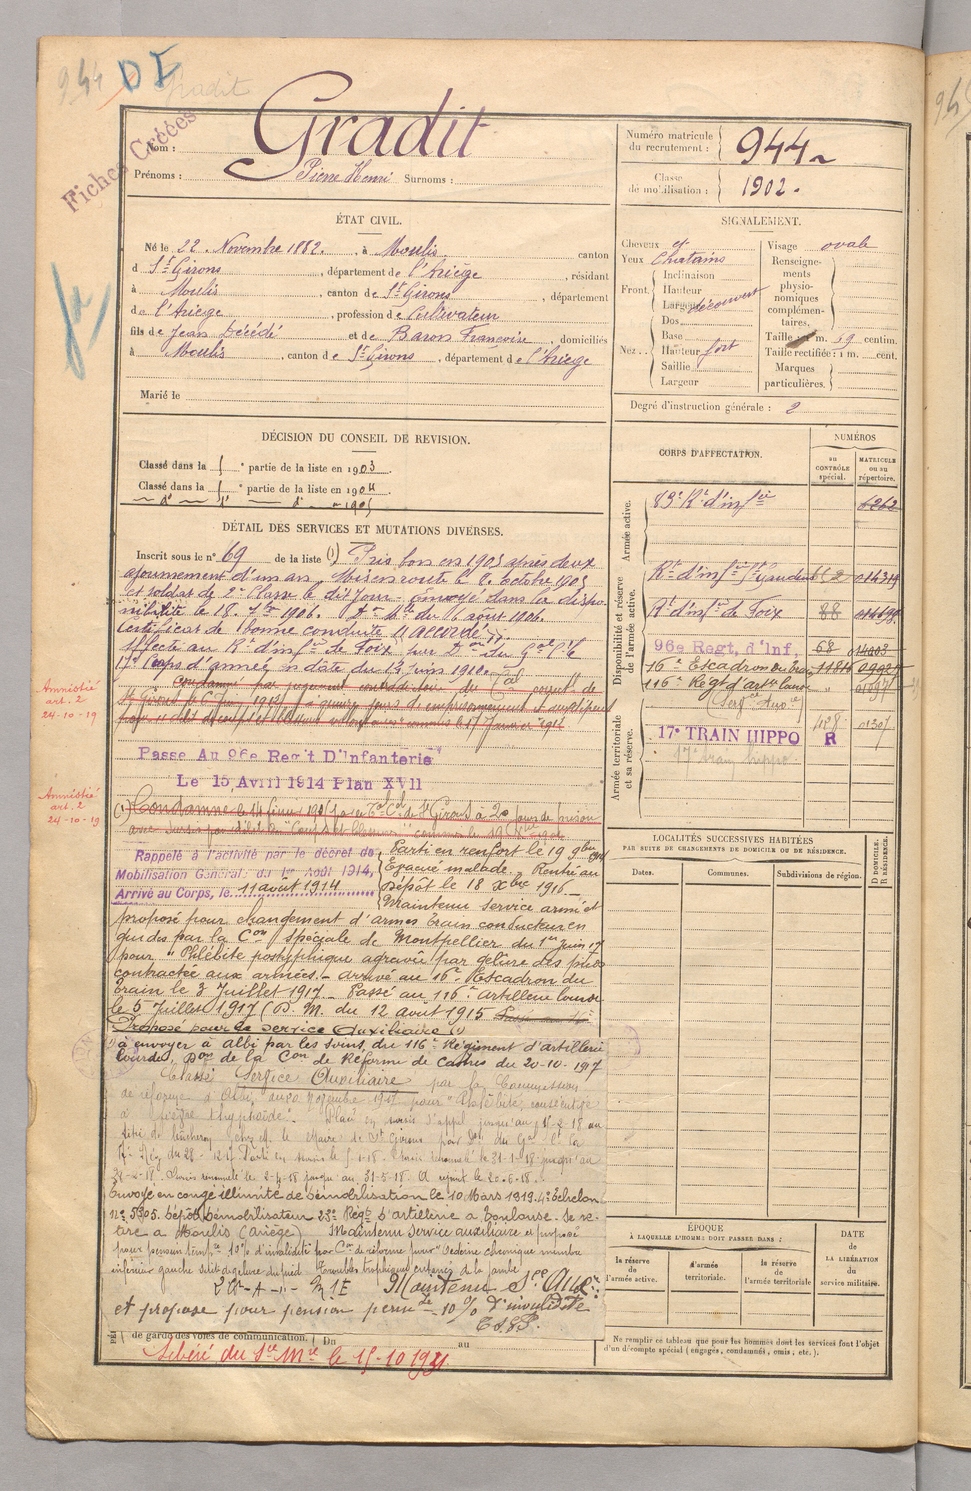 944 DI Gradit
Fiches Créées
Nom : Gradit
Prénoms : Pierre Henri Surnoms :
Numéro matricule du recrutement : 944
Classe de mobilisation : 1902.
ÉTAT CIVIL.
Né le 22. Novembre 1882. , à Moulis, canton
d St Girons , département de l'Ariège , résidant
à Moulis , canton de St Girons , département
de l'Ariège , profession de Cultivateur
fils de Jean Décédé et de Baron Françoise , domiciliés
à Moulis , canton de St Girons , département de l'Ariège
Marié le
SIGNALEMENT.
Cheveux et
Yeux Chatains
Front. Inclinaison
Hauteur
Largeur découvert
Nez.. Dos
Base
Hauteur fort
Saillie
Largeur
Visage ovale
Renseignements physionomiques complémentaires.
Taille 1 m. 59 centim.
Taille rectifiée : 1 m. cent.
Marques particulières.
Degré d'instruction générale : 2
DÉCISION DU CONSEIL DE REVISION.
Classé dans la 5e partie de la liste en 1903.
Classé dans la 5e partie de la liste en 1904
d° 5e d° 1905
DÉTAIL DES SERVICES ET MUTATIONS DIVERSES.
Inscrit sous le n° 69 de la liste (1) Pris bon en 1905 après deux
ajournement d'un an. Mis en route le 8 Octobre 1905
et soldat de 2e Classe le dit jour. Envoyé dans la dispo-
nibilité le 18. 7bre 1906. Don Mlle du 16 août 1906.
Certificat de bonne conduite "Accordé".
Affecté au Rt d'inf ie de Foix sur Don du Gal Ct le
17e Corps d'armée in date du 14 juin 1910.
Condamné par jugement contradictoire du Tal correct de
St Girons
Amnistié
art. 2
24-10-19
Passe Au 96e Reg't D'Infanterie
Le 15 Avril 1914 Plan XVII
Amnistié
art. 2
24-10-19
(1) Condamné le 14 février 1905 par le Tal Cel de St Girons à 20 jours de prison
avec sursis pour délit de "Coups et blessures"
Rappelé à l'activité par le décret de
Mobilisation Générale du 1er Août 1914,
Arrivé au Corps, le 11 août 1914
Parti en renfort le 19 9bre 1914
Évacué malade. Rentré au
Dépôt le 18 Xbre 1916.
Maintenu service armé et
proposé pour changement d'armes train conducteur en
guides par la Con spéciale de Montpellier du 1er juin 17
pour "Phlébite posttyphique agravée par gelure des pieds
contractée aux armées. - arrivé au 16e Escadron du
Train le 3 Juillet 1917. Passé au 116e artillerie lourde
le 5 Juillet 1917 (D. M. du 12 aout 1915
Proposé pour le service Auxiliaire (1)
(1) à envoyer à Albi par les soins du 116e Régiment d'artillerie
lourde, Don de la Con de Réforme de Castres du 20-10-1917
Classé Service Auxiliaire par la Commission
de réforme d'Albi du 20 Novembre 1917 pour "Phlébite consécutive
à fièvre thyphoïde". Placé en sursis d'appel jusqu'au 15-2-18 au
titre de bucheron chez M. le Maire de St Girons
Sursis renouvelé le 2-4-18 jusqu'au 31-5-18. A rejoint le 20-6-18.
Envoyé en congé illimité de démobilisation le 10 Mars 1919. 4e Echelon
n° 5305. Dépôt démobilisateur 23e Regt d'artillerie à Toulouse. Se re-
tire à Moulis (Ariège) Maintenu Service auxiliaire et proposé
pour pension temp re 10% d'invalidité par Con de réforme pour "Œdème chronique membre
inférieur gauche suite de gelure du pied. Troubles trophiques cutanés de la jambe
Maintenu Sce Auxre
et proposé pour pension perm te 10% d'invalidité
de garde des voies de communication. Du au
Libéré du Sce Mre le 15-10-1931
CORPS D'AFFECTATION.
NUMÉROS
au CONTRÔLE spécial.
MATRICULE ou au répertoire.
Armée active.
83e Rt d'inf ie 6262
Disponibilité et réserve de l'armée active.
Rt d'inf ie St Gaudens 014319
Rt d'inf ie de Foix 88
96e Regt, d'Inf, 68
16e Escadron du train
116e Regt d'artie lourde
(Serv ce Auxre)
Armée territoriale et sa réserve.
17e TRAIN HIPPO 428 R 01307
17e train hippo.
LOCALITÉS SUCCESSIVES HABITÉES
PAR SUITE DE CHANGEMENTS DE DOMICILE OU DE RÉSIDENCE.
Dates. Communes. Subdivisions de région. D DOMICILE. R RÉSIDENCE.
ÉPOQUE
À LAQUELLE L'HOMME DOIT PASSER DANS :
la réserve de l'armée active.
l'armée territoriale.
la réserve de l'armée territoriale
DATE de LA LIBÉRATION du service militaire.
Ne remplir ce tableau que pour les hommes dont les services font l'objet
d'un décompte spécial ( engagés, condamnés, omis , etc.).